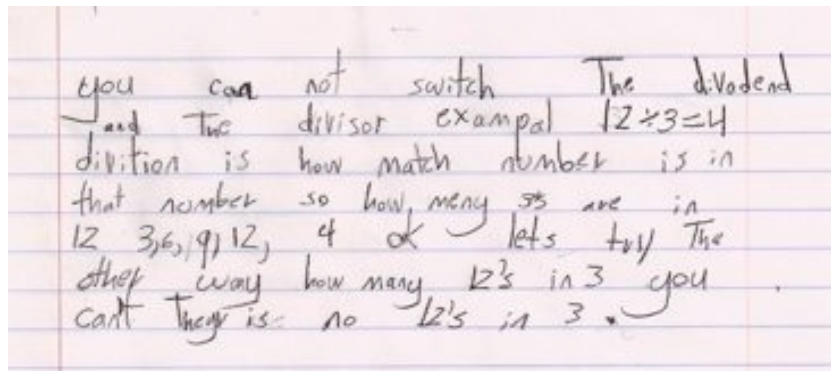 you can not switch The dividend
and The divisor exampal 12÷3=4
divition is how match number is in
that number so how meny 3s are in
12 3,6,9,12, 4 ok lets try The
other way how many 12's in 3 you
can't Theyr is no 12's in 3.